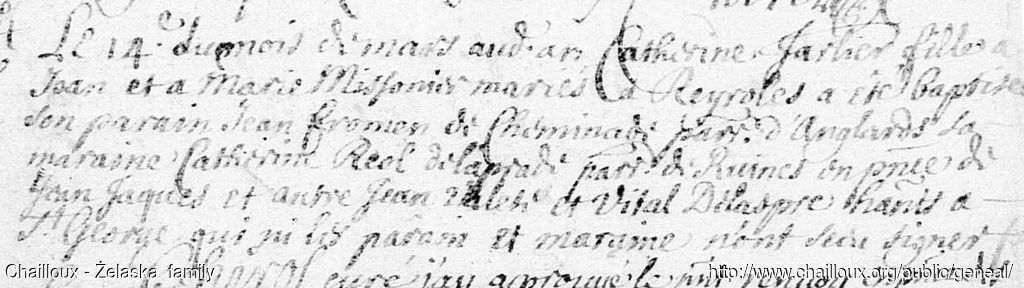 Le 14.e du mois de mars aud. an Catherine Jarlier fille a
Jean et a Marie Missonier mariés a Reyroles a été baptisée
son parain Jean fromen de Cheminade parr. d'Anglards sa
maraine Catherine Reol delaprade parr. de Ruines en pnce de
Jean Jaques et autre Jean valets et Vital Delaspre hañts a
St George qui ni les parain et maraine n'ont sceu signer
curé j'ay approuvé le
Chailloux - Żelaska family
http://www.chailloux.org/public/geneal/